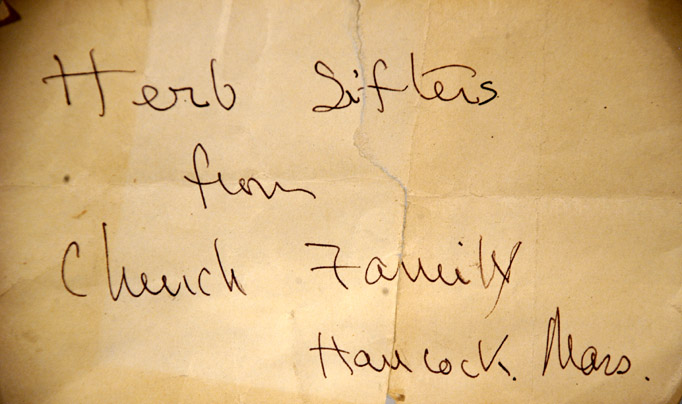 Herb Sifters
from
Church Family
Hancock. Mass.